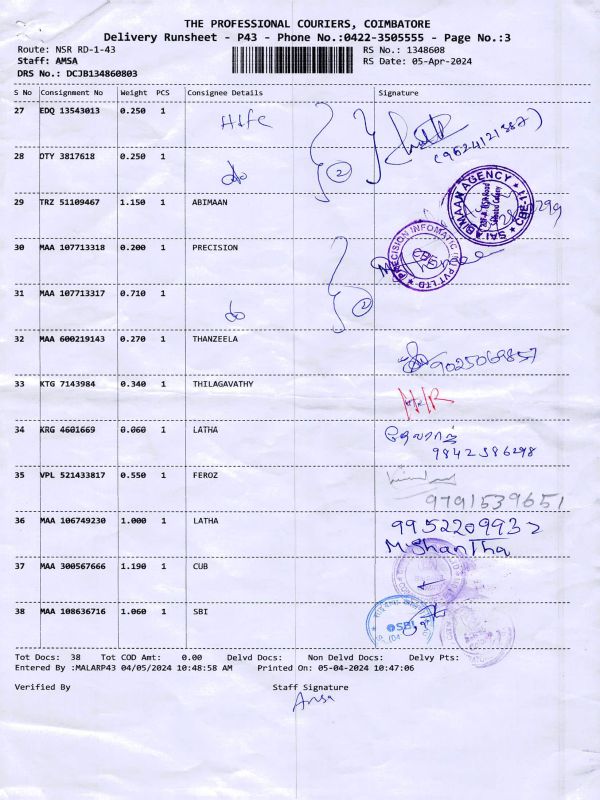 THE PROFESSIONAL COURIERS, COIMBATORE
Delivery Runsheet - P43 - Phone No.:0422-3505555 - Page No.:3
Route: NSR RD-1-43 RS No.: 1348608
Staff: AMSA RS Date: 05-Apr-2024
DRS No.: DCJB134860803
S No Consignment No Weight PCS Consignee Details Signature
27 EDQ 13543013 0.250 1
28 DTY 3817618 0.250 1 do 2
29 TRZ 51109467 1.150 1 ABIMAAN
SAI ABIMAAN AGENCY CBE-11
30 MAA 107713318 0.200 1 PRECISION
PRECISION INFOMATIC PVT LTD
31 MAA 107713317 0.710 1 do 2
32 MAA 600219143 0.270 1 THANZEELA 9025069857
33 KTG 7143984 0.340 1 THILAGAVATHY
34 KRG 4601669 0.060 1 LATHA
9842386298
35 VPL 521433817 0.550 1 FEROZ
9791539651
36 MAA 106749230 1.000 1 LATHA 9952209932
M.Shantha
37 MAA 300567666 1.190 1 CUB
38 MAA 108636716 1.060 1 SBI
SBI
Tot Docs: 38 Tot COD Amt: 0.00 Delvd Docs: Non Delvd Docs: Delvy Pts:
Entered By :MALARP43 04/05/2024 10:48:58 AM Printed On: 05-04-2024 10:47:06
Verified By Staff Signature
Amsa